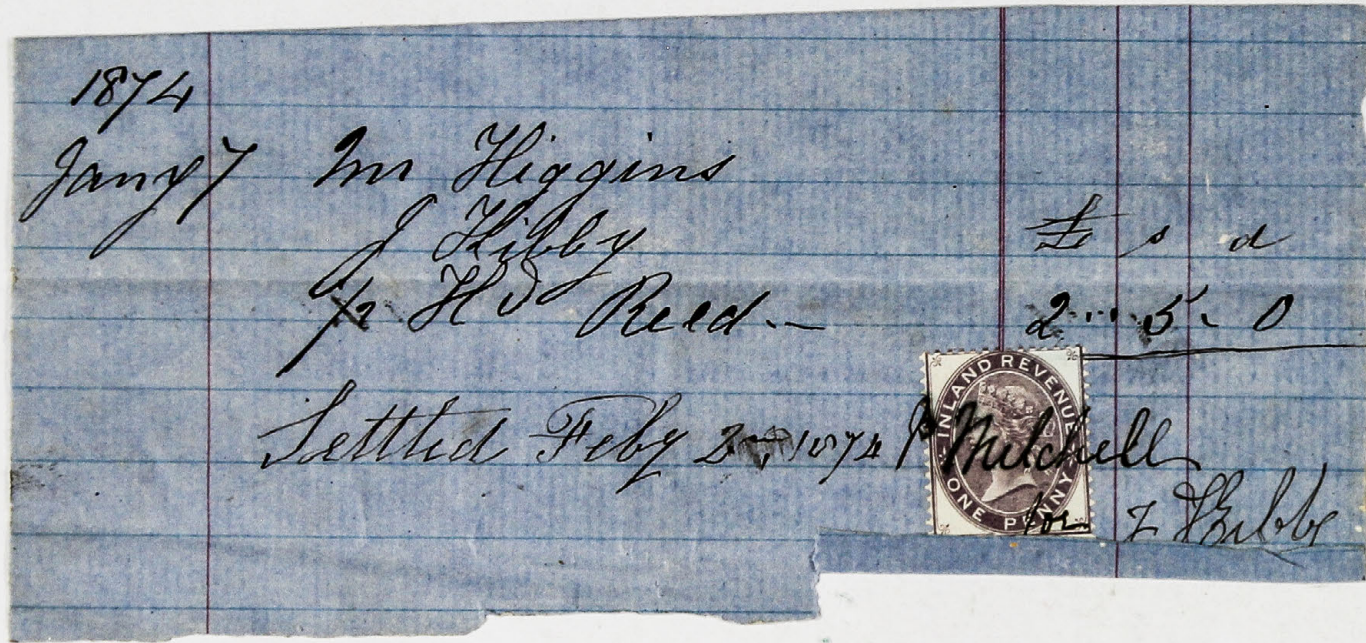 1874
Jany 7 Mr Higgins
J Kibby
£ s d
1/2 Hd Reed - 2 " 5 - 0
Settled Feby 2nd, 1874 Mitchell
for
INLAND REVENUE
ONE PENNY